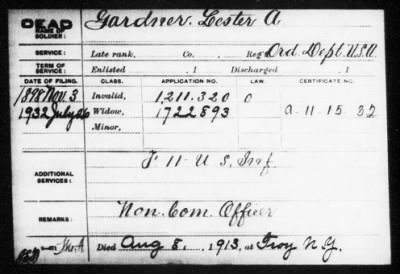 DEAD Gardner Lester A
NAME OF SOLDIER:
SERVICE: Late rank, Co. Reg't Ord. Dept. U.S.A.
TERM OF SERVICE: Enlisted , 1 Discharged , 1
DATE OF FILING. CLASS. APPLICATION NO. LAW CERTIFICATE NO.
1898 Nov. 3 Invalid, 1,211.320 O
1932 July Widow, 1722893 A-11-15-32
Minor,
ADDITIONAL SERVICES: F 11 U S Inf.
REMARKS: Non. Com. Officer
Died Aug 8, 1913, at Troy N.Y.